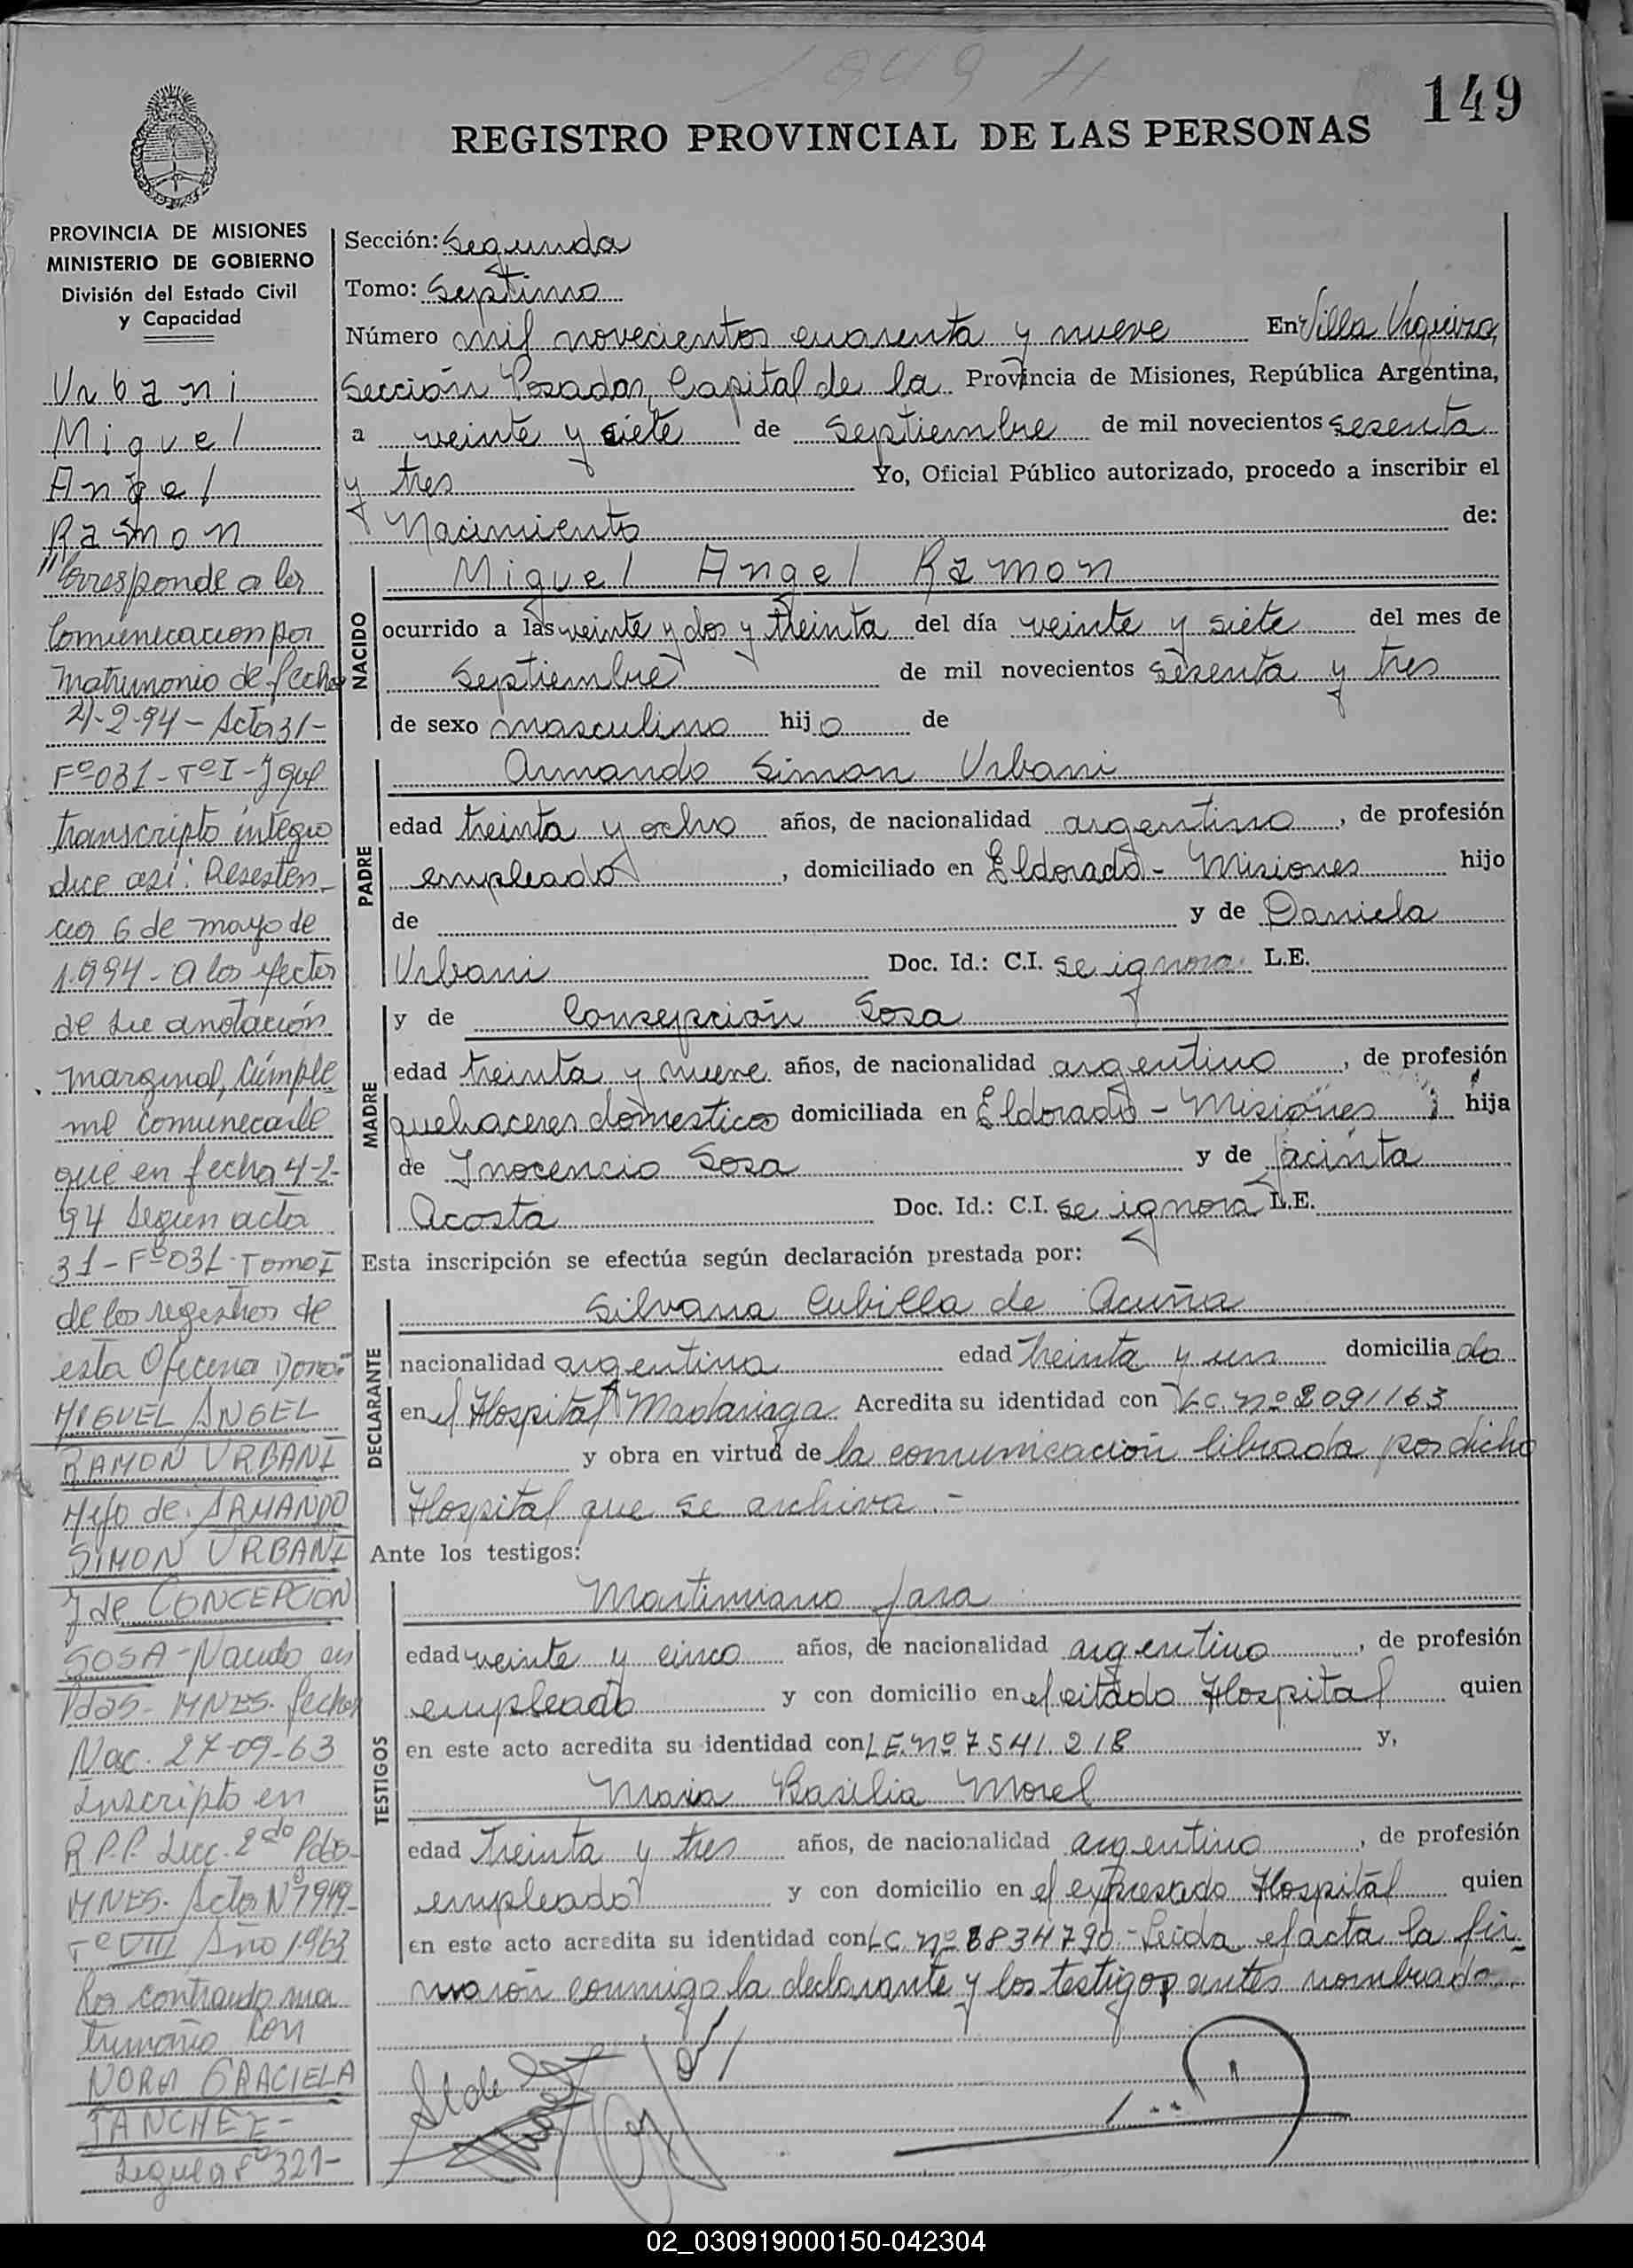 1949 H
149
REGISTRO PROVINCIAL DE LAS PERSONAS
PROVINCIA DE MISIONES
MINISTERIO DE GOBIERNO
División del Estado Civil
y Capacidad
Urbani
Miguel
Angel
Ramon
"Corresponde a la
Comunicacion por
Matrimonio de fecha
21-2-94 - Acta 31-
Fº 031 - Tº I - Y que
transcripto integro
dice asi: Resisten-
cia 6 de mayo de
1.994 - a los efectos
de su anotación
marginal, Cúmple
me comunicarle
que en fecha 4-2-
94 Segun acta
31 - Fº 031 - Tomo I
de los registros de
esta Oficina Don:
MIGUEL ANGEL
RAMON URBANI
Hijo de: ARMANDO
SIMON URBANI
y de CONCEPCION
SOSA - Nacido en
Pdas - MNES. fecha
Nac. 27-09-63
Inscripto en
R.P.P. Secc. 2da Pdas-
MNES. Acta Nº 1949-
Tº VIII Año 1.963
Ha contraido ma
trimonio con
NORA GRACIELA
SANCHEZ -
Sigue a Fº 321-
Sección: Segunda
Tomo: Septimo
Número mil novecientos cuarenta y nueve En Villa Urquiza,
Sección Posadas, Capital de la Provincia de Misiones, República Argentina,
a veinte y siete de Septiembre de mil novecientos sesenta
y tres Yo, Oficial Público autorizado, procedo a inscribir el
Nacimiento de:
NACIDO
Miguel Angel Ramon
ocurrido a las veinte y dos y treinta del día veinte y siete del mes de
Septiembre de mil novecientos sesenta y tres
de sexo masculino hijo de
PADRE
Armando Simon Urbani
edad treinta y ocho años, de nacionalidad argentino, de profesión
empleado, domiciliado en Eldorado - Misiones hijo
de y de Daniela
Urbani Doc. Id.: C.I. se ignora L.E.
MADRE
y de Consepción Sosa
edad treinta y nueve años, de nacionalidad argentino, de profesión
quehaceres domesticos domiciliada en Eldorado - Misiones hija
de Inocencio Sosa y de Jacinta
Acosta Doc. Id.: C.I. se ignora L.E.
Esta inscripción se efectúa según declaración prestada por:
DECLARANTE
Silvana Cubilla de Acuña
nacionalidad argentina edad treinta y un domiciliado
en el Hospital Madariaga Acredita su identidad con L.C. nº 2091163
y obra en virtud de la comunicación librada por dicho
Hospital que se archiva.-
Ante los testigos:
TESTIGOS
Martimiano Jara
edad veinte y cinco años, de nacionalidad argentino, de profesión
empleado y con domicilio en el citado Hospital quien
en este acto acredita su identidad con L.E. nº 7541.218 y,
Maria Basilia Morel
edad treinta y tres años, de nacionalidad argentino, de profesión
empleado y con domicilio en el expresado Hospital quien
en este acto acredita su identidad con L.C. nº 8834790.- Leida el acta la fir-
maron conmigo la declarante y los testigos antes nombrado.
02_030919000150-042304